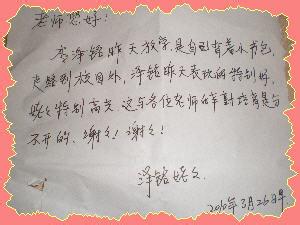 老师您好:
李泽铭昨天放学是自己背着小书包
走路到校门外,泽铭昨天表现的特别好,
姥姥特别高兴 这与各位老师的辛勤培育是分
不开的,谢谢!谢谢!
泽铭姥姥
2010年3月26日早